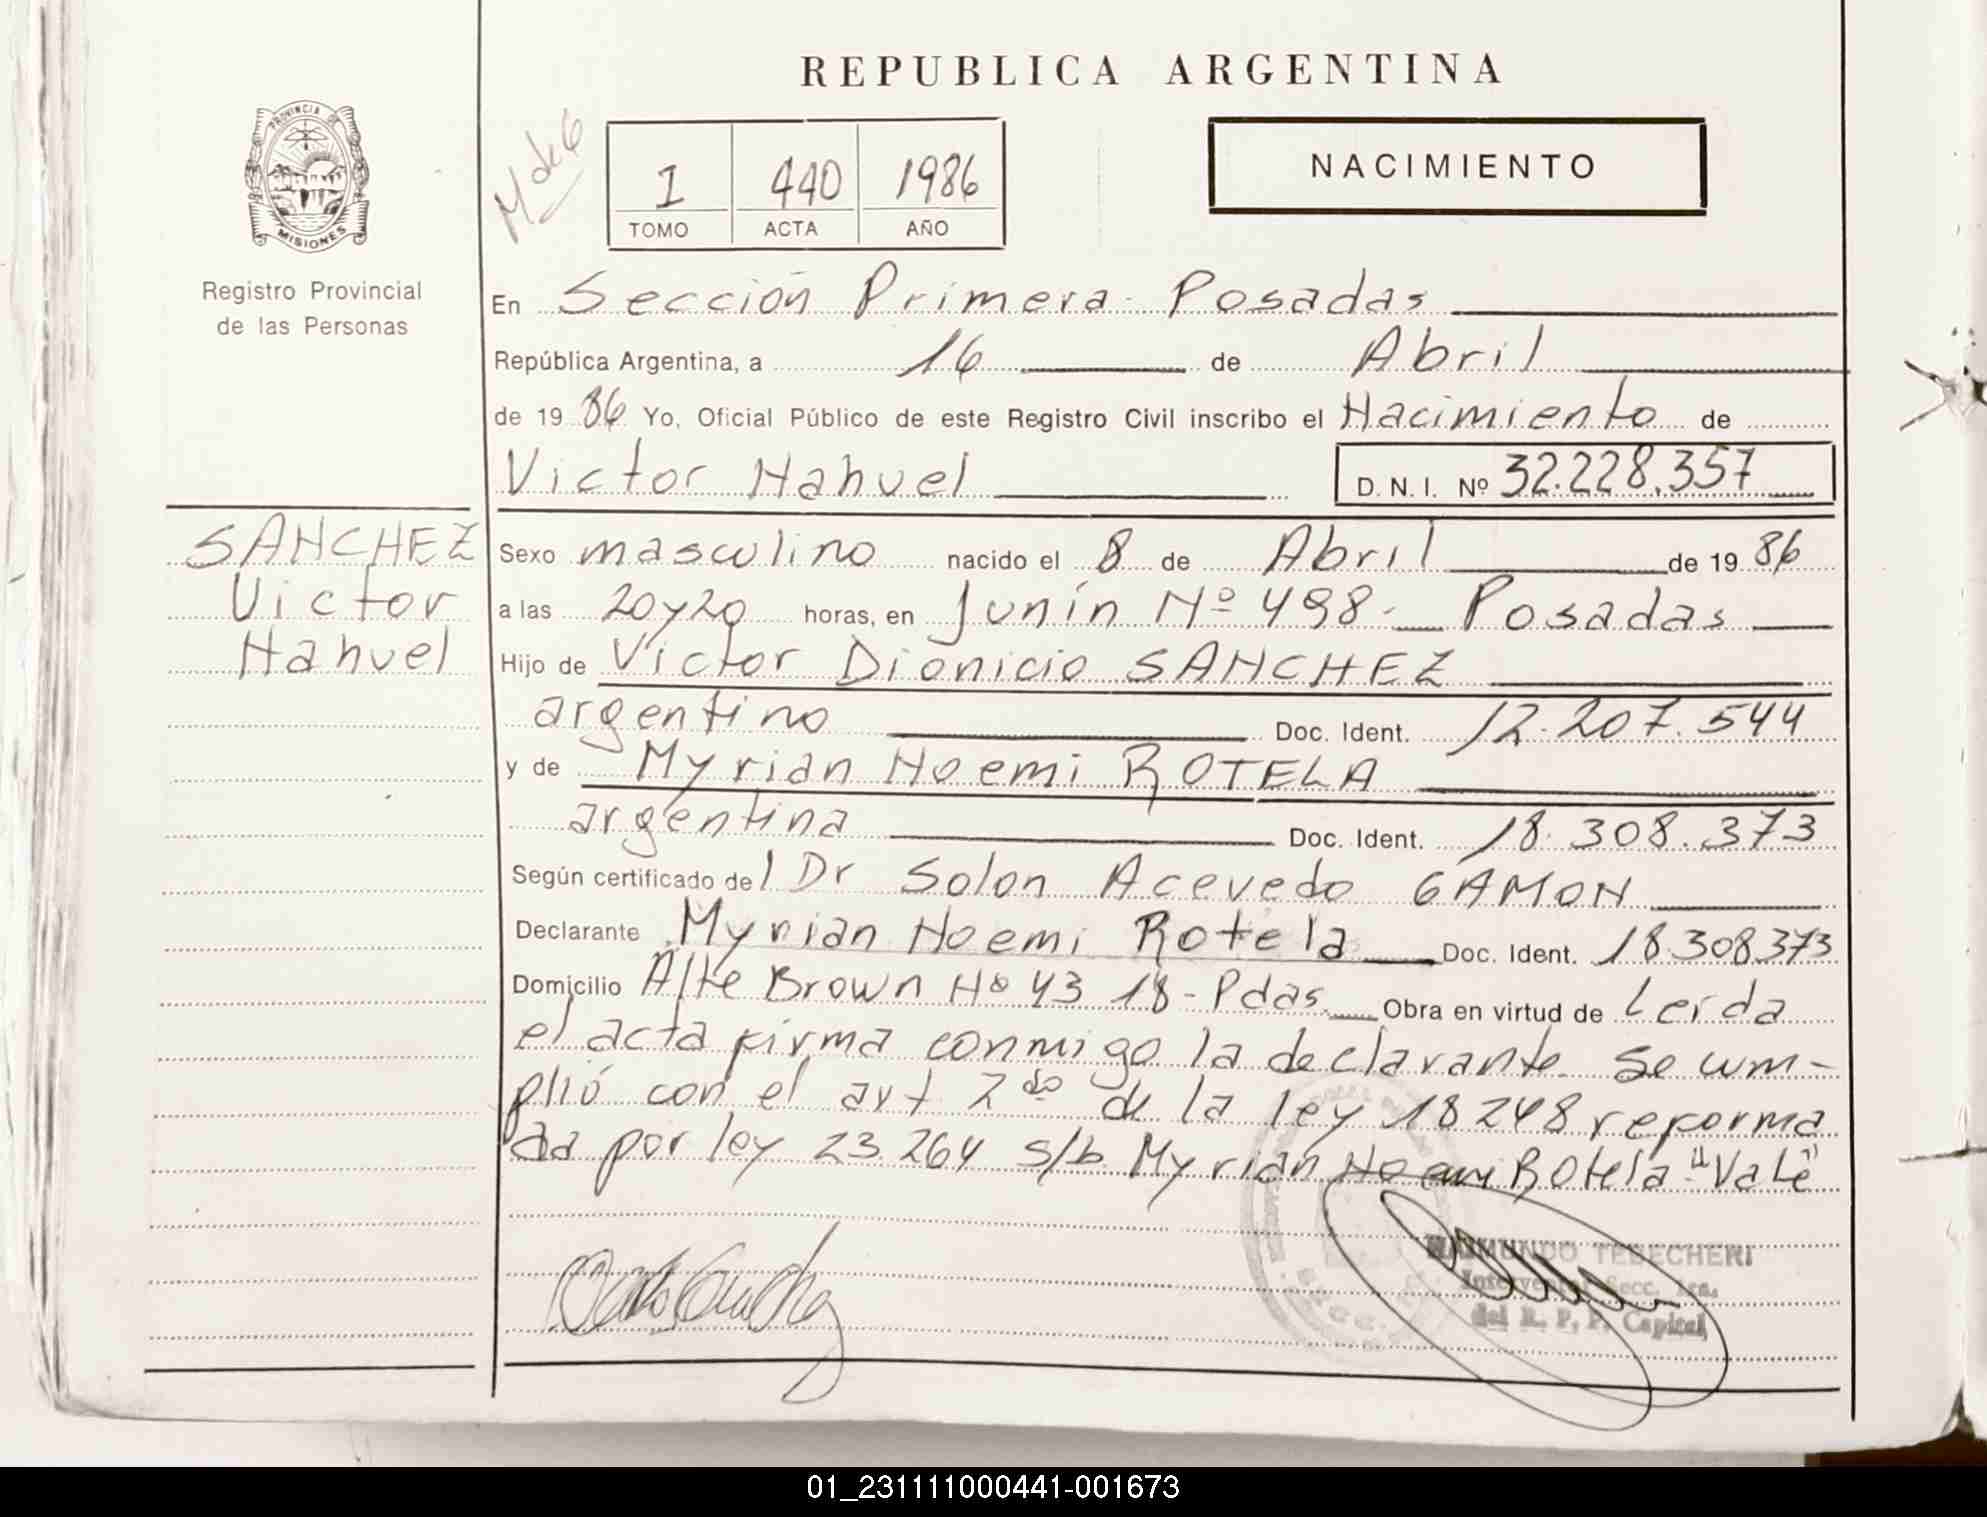 REPUBLICA ARGENTINA
PROVINCIA DE
MISIONES
Registro Provincial
de las Personas
M de 6
1 440 1986
TOMO ACTA AÑO
NACIMIENTO
En Sección Primera Posadas
República Argentina, a 16 de Abril
de 19 86 Yo, Oficial Público de este Registro Civil inscribo el Nacimiento de
Victor Nahuel D.N.I. Nº 32.228.357
SANCHEZ
Victor
Nahuel
Sexo masculino nacido el 8 de Abril de 19 86
a las 20y20 horas, en Junín Nº 498 - Posadas
Hijo de Victor Dionicio SANCHEZ
argentino Doc. Ident. 12.207.544
y de Myrian Noemi ROTELA
argentina Doc. Ident. 18.308.373
Según certificado del Dr Solon Acevedo GAMON
Declarante Myrian Noemi Rotela Doc. Ident. 18.308.373
Domicilio Alte Brown Nº 43 18 - Pdas. Obra en virtud de Leida
el acta firma conmigo la declarante. Se cum-
plió con el art 2do de la ley 18248 reforma
da por ley 23.264 s/b Myrian Noemi Rotela "Vale"
RAIMUNDO TEBECHERI
Interventor Secc. 1ra.
del R. P. P. Capital
01_231111000441-001673